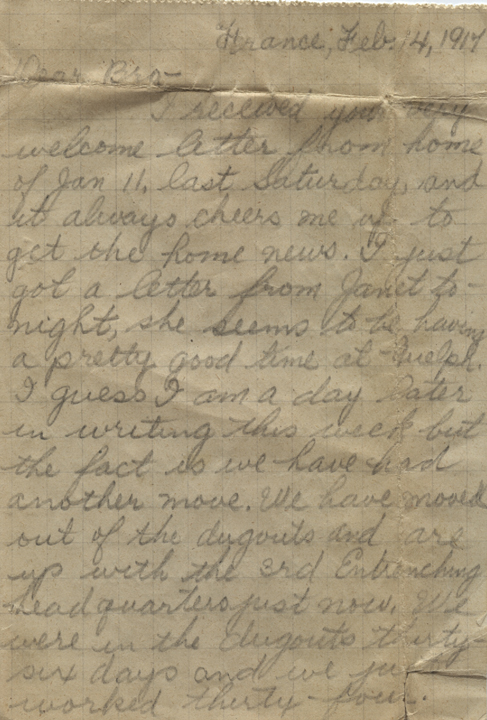 France, Feb. 14, 1917
Dear Bro-
I received your very
welcome letter from home
of Jan 11, last Saturday, and
it always cheers me up to
get the home news. I just
got a letter from Janet to-
night, she seems to be having
a pretty good time at Guelph.
I guess I am a day later
in writing this week but
the fact is we have had
another move. We have moved
out of the dugouts and are
up with the 3rd Entrenching
headquarters just now. We
were in the dugouts thirty-
six days and we
worked thirty-four.